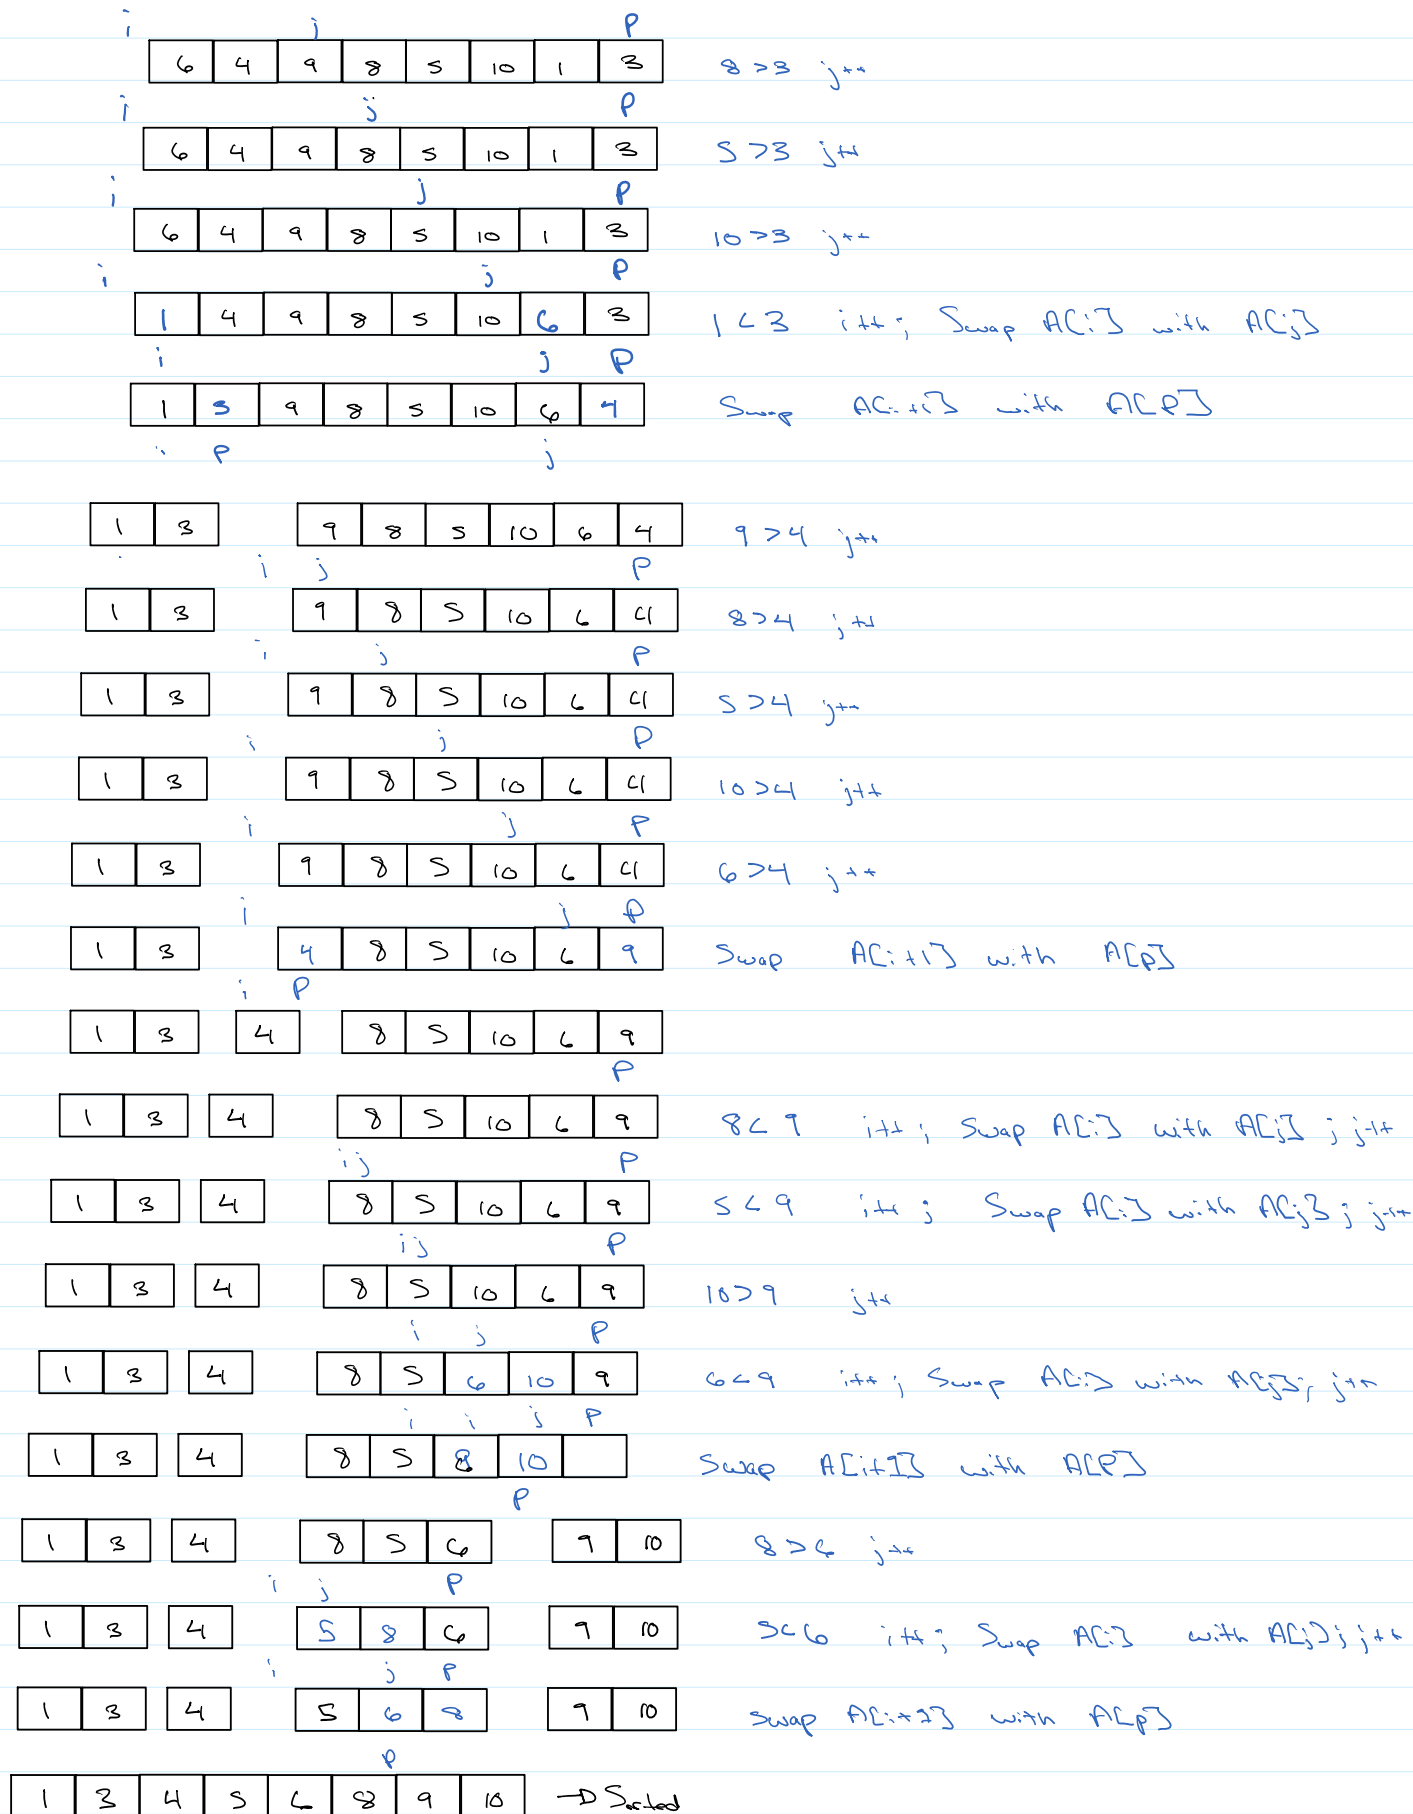 i j P
6 4 9 8 5 10 1 3 8 > 3 j++
i j P
6 4 9 8 5 10 1 3 5 > 3 j++
i j P
6 4 9 8 5 10 1 3 10 > 3 j++
i j P
1 4 9 8 5 10 6 3 1 < 3 i++; Swap A[i] with A[j]
i j P
1 3 9 8 5 10 6 4 Swap A[i+1] with A[P]
i P j
1 3 9 8 5 10 6 4 9 > 4 j++
i j P
1 3 9 8 5 10 6 4 8 > 4 j++
i j P
1 3 9 8 5 10 6 4 5 > 4 j++
i j P
1 3 9 8 5 10 6 4 10 > 4 j++
i j P
1 3 9 8 5 10 6 4 6 > 4 j++
i j P
1 3 4 8 5 10 6 9 Swap A[i+1] with A[p]
i P
1 3 4 8 5 10 6 9
P
1 3 4 8 5 10 6 9 8 < 9 i++; Swap A[i] with A[j]; j++
i j P
1 3 4 8 5 10 6 9 5 < 9 i++; Swap A[i] with A[j]; j++
i j P
1 3 4 8 5 10 6 9 10 > 9 j++
i j P
1 3 4 8 5 6 10 9 6 < 9 i++; Swap A[i] with A[j]; j++
i i j P
1 3 4 8 5 10 Swap A[i+1] with A[P]
P
1 3 4 8 5 6 9 10 8 > 6 j++
i j P
1 3 4 5 8 6 9 10 5 < 6 i++; Swap A[i] with A[j]; j++
i j P
1 3 4 5 6 8 9 10 swap A[i+1] with A[p]
P
1 3 4 5 6 8 9 10 → Sorted